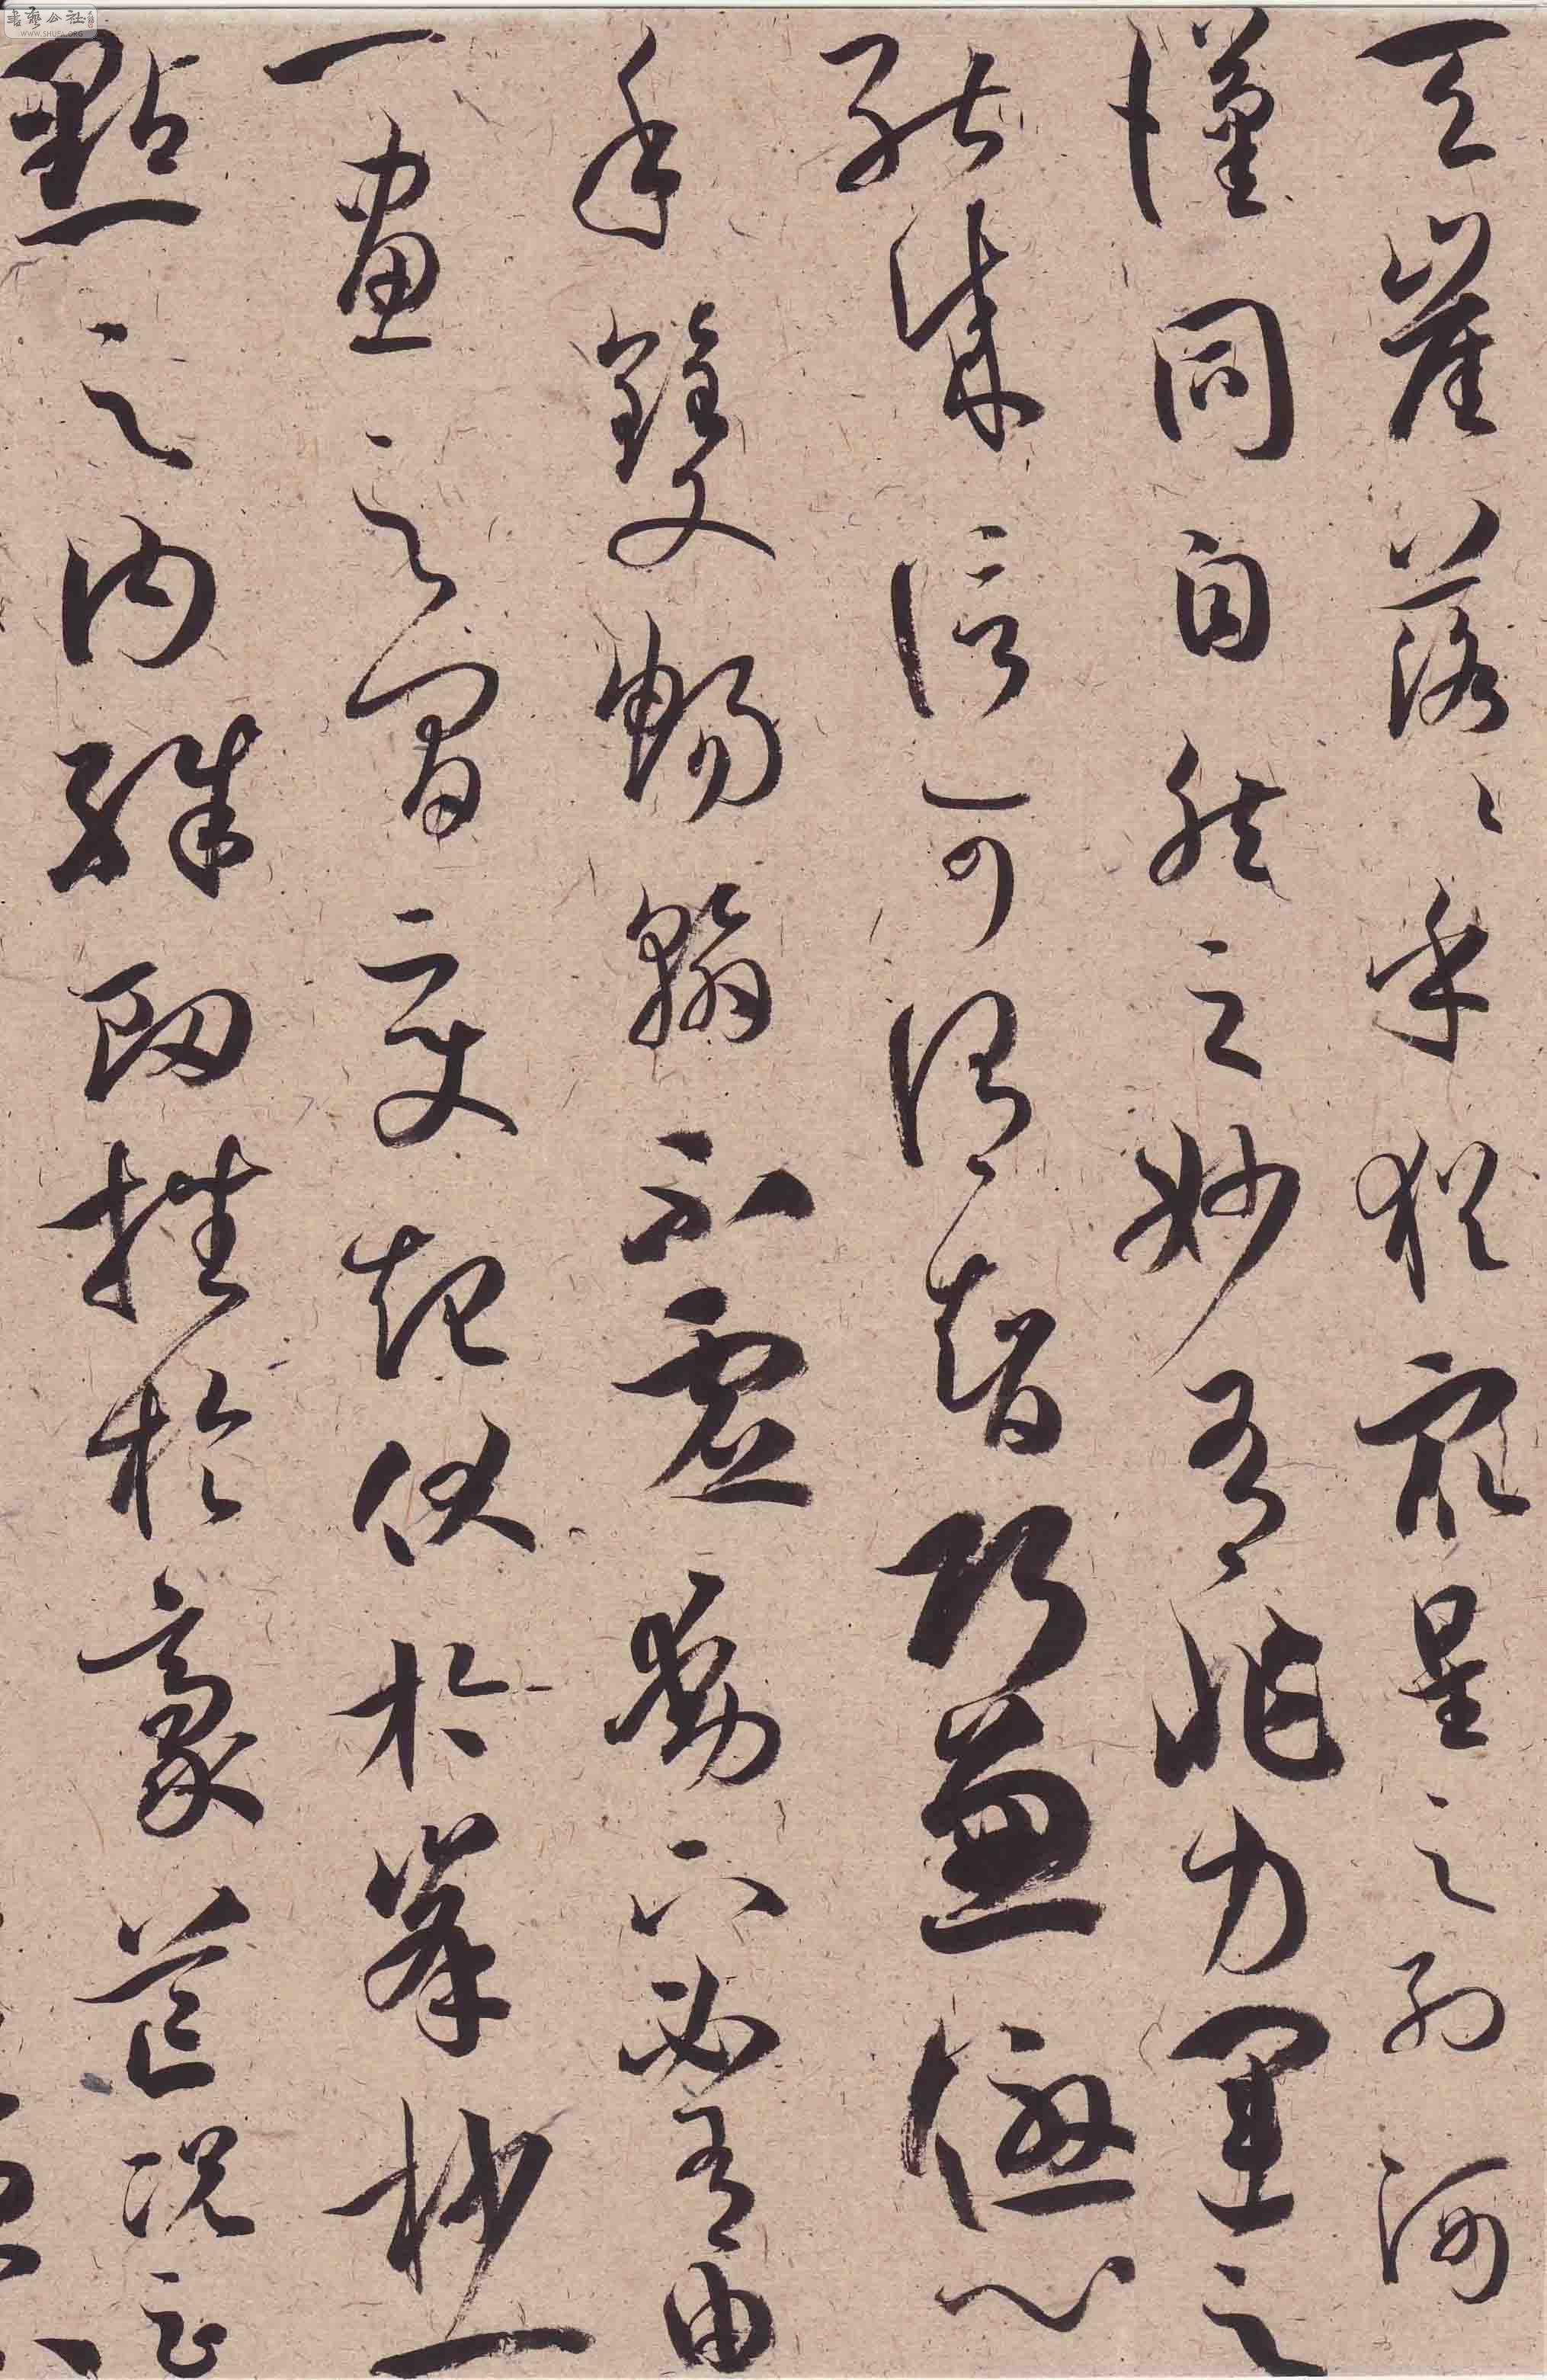 天崖落々乎猶眾星之列河
漢同自然之妙有非力運之
能成信可謂智巧兼優心
手雙暢翰不虛動下必有由
一畫之間變起伏於峯杪一
點之內殊衄挫於豪芒況云
書藝公社
WWW.SHUFA.ORG